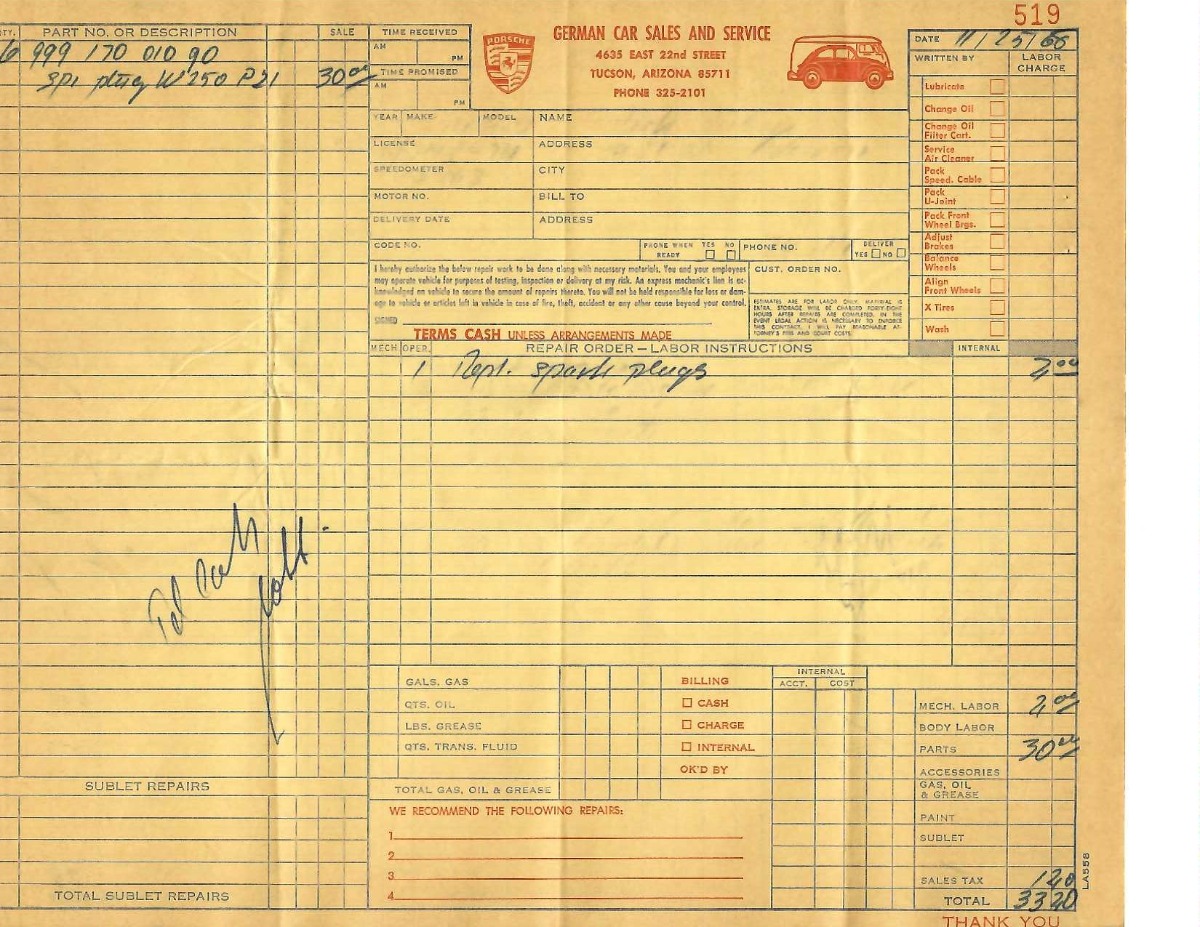 519
TY. PART NO. OR DESCRIPTION SALE
6 999 170 010 90
spi plug W 250 P21 30 00
TIME RECEIVED
AM
PM
TIME PROMISED
AM
PM
PORSCHE
GERMAN CAR SALES AND SERVICE
4635 EAST 22nd STREET
TUCSON, ARIZONA 85711
PHONE 325-2101
DATE 11/25/66
WRITTEN BY LABOR CHARGE
Lubricate
Change Oil
Change Oil
Filter Cart.
Service
Air Cleaner
Pack
Speed. Cable
Pack
U-Joint
Pack Front
Wheel Brgs.
Adjust
Brakes
Balance
Wheels
Align
Front Wheels
X Tires
Wash
YEAR MAKE MODEL NAME
LICENSE ADDRESS
SPEEDOMETER CITY
MOTOR NO. BILL TO
DELIVERY DATE ADDRESS
CODE NO. PHONE WHEN READY YES NO PHONE NO. DELIVER YES NO
I hereby authorize the below repair work to be done along with necessary materials. You and your employees
may operate vehicle for purposes of testing, inspection or delivery at my risk. An express mechanic's lien is ac-
knowledged on vehicle to secure the amount of repairs thereto. You will not be held responsible for loss or dam-
age to vehicle or articles left in vehicle in case of fire, theft, accident or any other cause beyond your control.
SIGNED
TERMS CASH UNLESS ARRANGEMENTS MADE
CUST. ORDER NO.
ESTIMATES ARE FOR LABOR ONLY, MATERIAL IS
EXTRA. STORAGE WILL BE CHARGED FORTY-EIGHT
HOURS AFTER REPAIRS ARE COMPLETED. IN THE
EVENT LEGAL ACTION IS NECESSARY TO ENFORCE
THIS CONTRACT, I WILL PAY REASONABLE AT-
TORNEY'S FEES AND COURT COSTS.
MECH OPER. REPAIR ORDER—LABOR INSTRUCTIONS INTERNAL
1 Repl. spark plugs 2 00
Pd Cash
GALS. GAS
QTS. OIL
LBS. GREASE
QTS. TRANS. FLUID
TOTAL GAS, OIL & GREASE
BILLING
CASH
CHARGE
INTERNAL
OK'D BY
INTERNAL
ACCT. COST
MECH. LABOR 2 00
BODY LABOR
PARTS 30 00
ACCESSORIES
GAS, OIL
& GREASE
PAINT
SUBLET
SALES TAX 1 20
TOTAL 33 20
SUBLET REPAIRS
TOTAL SUBLET REPAIRS
WE RECOMMEND THE FOLLOWING REPAIRS:
1
2
3
4
LA558
THANK YOU